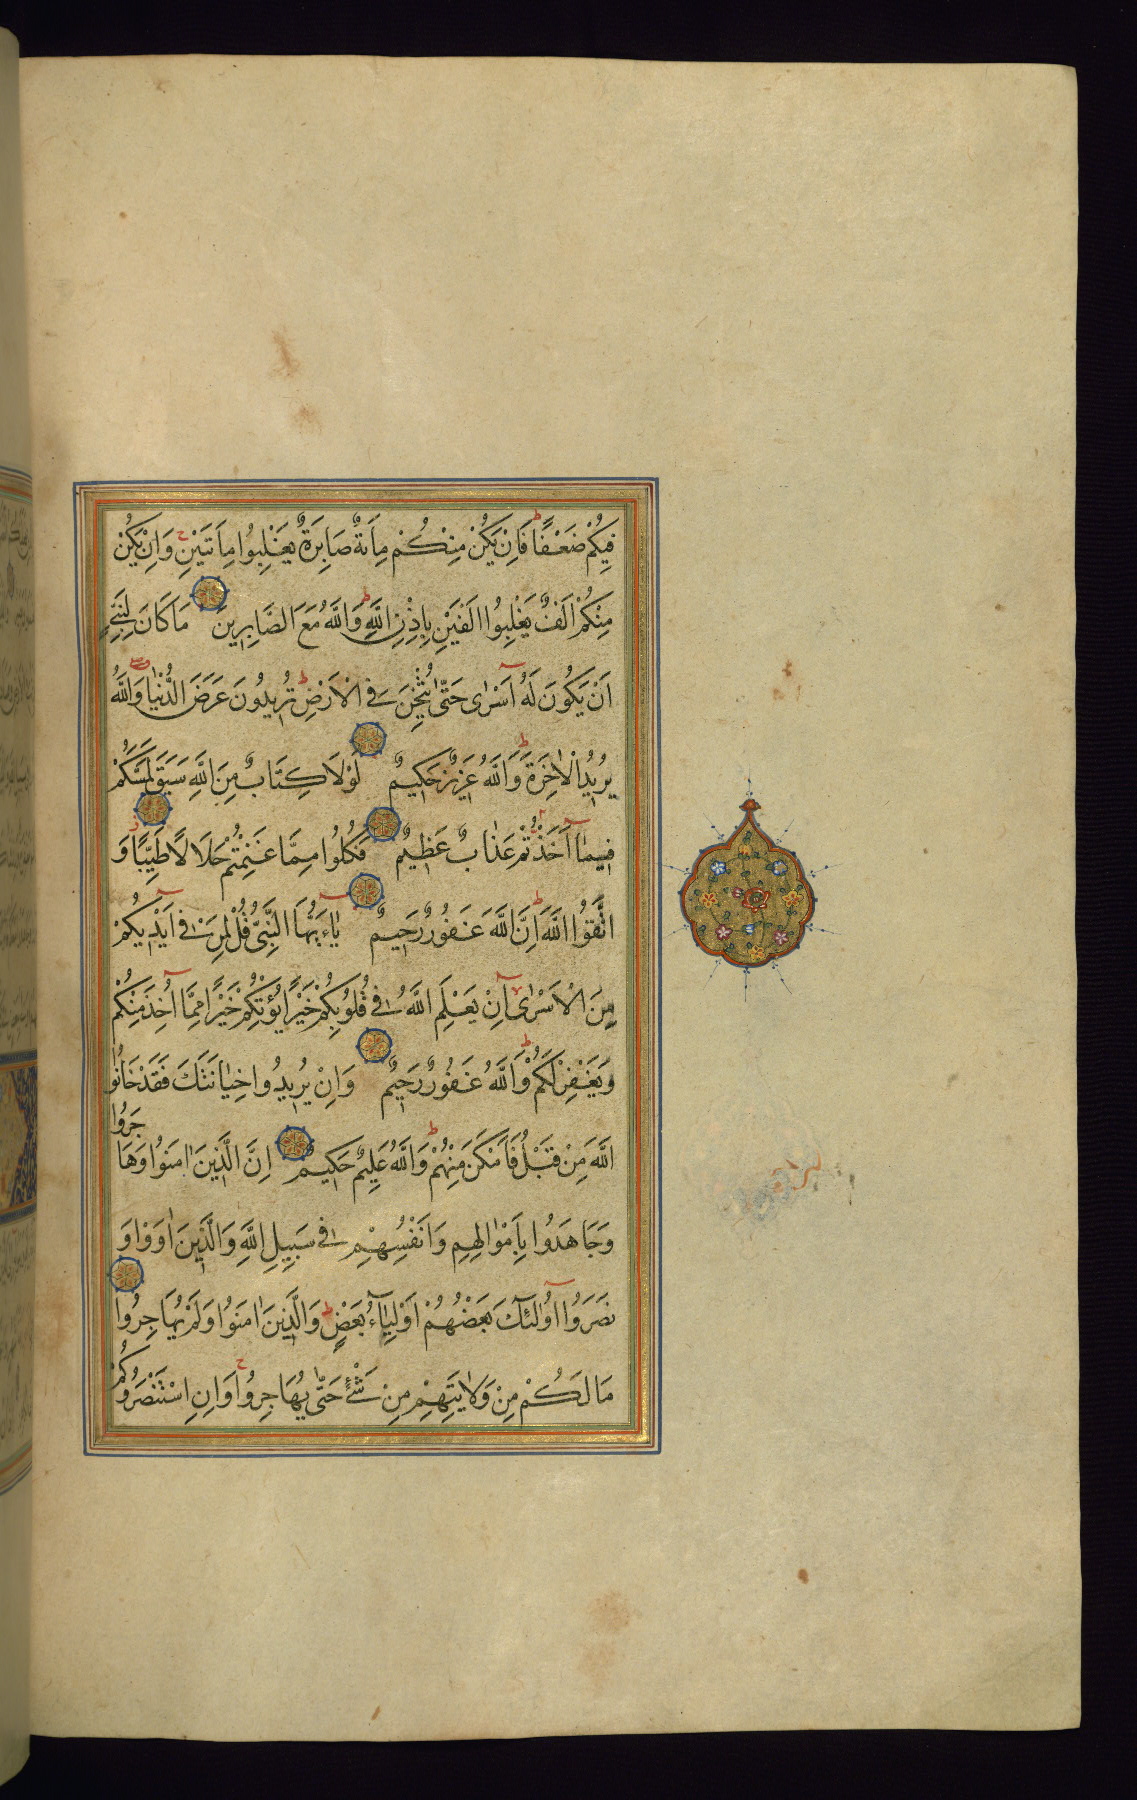 فِيكُمْ ضَعْفًا فَاِنْ يَكُنْ مِنْكُمْ مِاَئَةٌ صَابِرَةٌ يَغْلِبُوا مِاَتَيْنِ وَاِنْ يَكُنْ
مِنْكُمْ اَلْفٌ يَغْلِبُوا اَلْفَيْنِ بِاِذْنِ اللَّهِ وَاللَّهُ مَعَ الصَّابِرِينَ مَا كَانَ لِنَبِيٍّ
اَنْ يَكُونَ لَهُ اَسْرٰى حَتّٰى يُثْخِنَ فِي الْاَرْضِ تُرِيدُونَ عَرَضَ الدُّنْيٰا وَاللَّهُ
يُرِيدُ الْاٰخِرَةَ وَاللَّهُ عَزِيزٌ حَكِيمٌ لَوْلَا كِتَابٌ مِنَ اللَّهِ سَبَقَ لَمَسَّكُمْ
فِيمٰا اَخَذْتُمْ عَذٰابٌ عَظِيمٌ فَكُلُوا مِمَّا غَنِمْتُمْ حَلَالًا طَيِّبًا وَ
اتَّقُوا اللَّهَ اِنَّ اللَّهَ غَفُورٌ رَحِيمٌ يٰاءَيُّهَا النَّبِيُّ قُلْ لِمَنْ فِي اَيْدِيكُمْ
مِنَ الْاَسْرٰى اِنْ يَعْلَمِ اللَّهُ فِي قُلُوبِكُمْ خَيْرًا يُؤْتِكُمْ خَيْرًا مِمَّا اُخِذَ مِنْكُمْ
وَيَغْفِرْ لَكُمْ وَاللَّهُ غَفُورٌ رَحِيمٌ وَاِنْ يُرِيدُوا خِيٰانَتَكَ فَقَدْ خَانُوا
اللَّهَ مِنْ قَبْلُ فَاَمْكَنَ مِنْهُمْ وَاللَّهُ عَلِيمٌ حَكِيمٌ اِنَّ الَّذِينَ اٰمَنُوا وَهَاجَرُوا
وَجَاهَدُوا بِاَمْوٰالِهِمْ وَاَنْفُسِهِمْ فِي سَبِيلِ اللَّهِ وَالَّذِينَ اٰوَوْا وَ
نَصَرُوا اُولٰئِكَ بَعْضُهُمْ اَوْلِيٰاءُ بَعْضٍ وَالَّذِينَ اٰمَنُوا وَلَمْ يُهَاجِرُوا
مَا لَكُمْ مِنْ وَلَايَتِهِمْ مِنْ شَيْءٍ حَتّٰى يُهَاجِرُوا وَاِنِ اسْتَنْصَرُوكُمْ